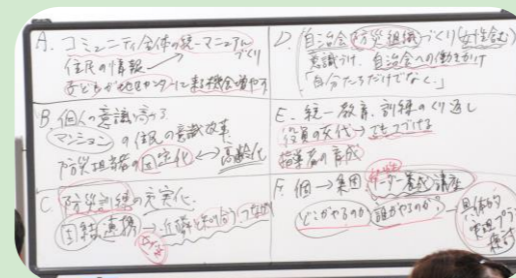 A. コミュニティ全体の統一マニュアルづくり
住民の情報
子どもが地区センターに来る機会増やす
B. 個人の意識高める
マンションの住民の意識改革
防災担当者の固定化 ↔ 高齢化
C. 防災訓練の充実化
団結連携 → 近隣との
D. 自治会防災組織づくり(女性含む)
意識づけ、自治会への働きかけ
「自分たちだけでなく」
E. 統一教育、訓練のくり返し
役員の交代 → でもつづける
指導者の育成
F. 個 → 集団 リーダー養成講座
どこがやるのか 誰がやるのか?
具体的
実現プラン
検討